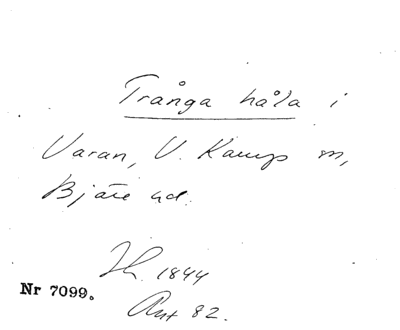 Trånga håla i
Varan, V. Karup sn,
Bjäre hd.
Jh. 1844
Nr 7099.
Ant 82.